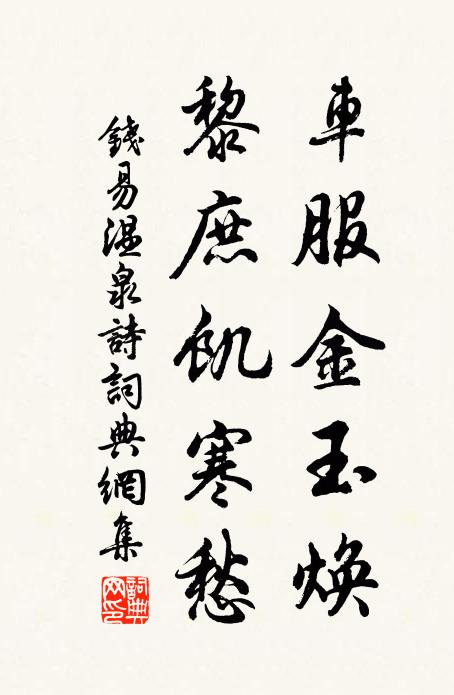 車服金玉焕
黎庶飢寒愁
錢易溫泉詩詞典網集
詞典網印